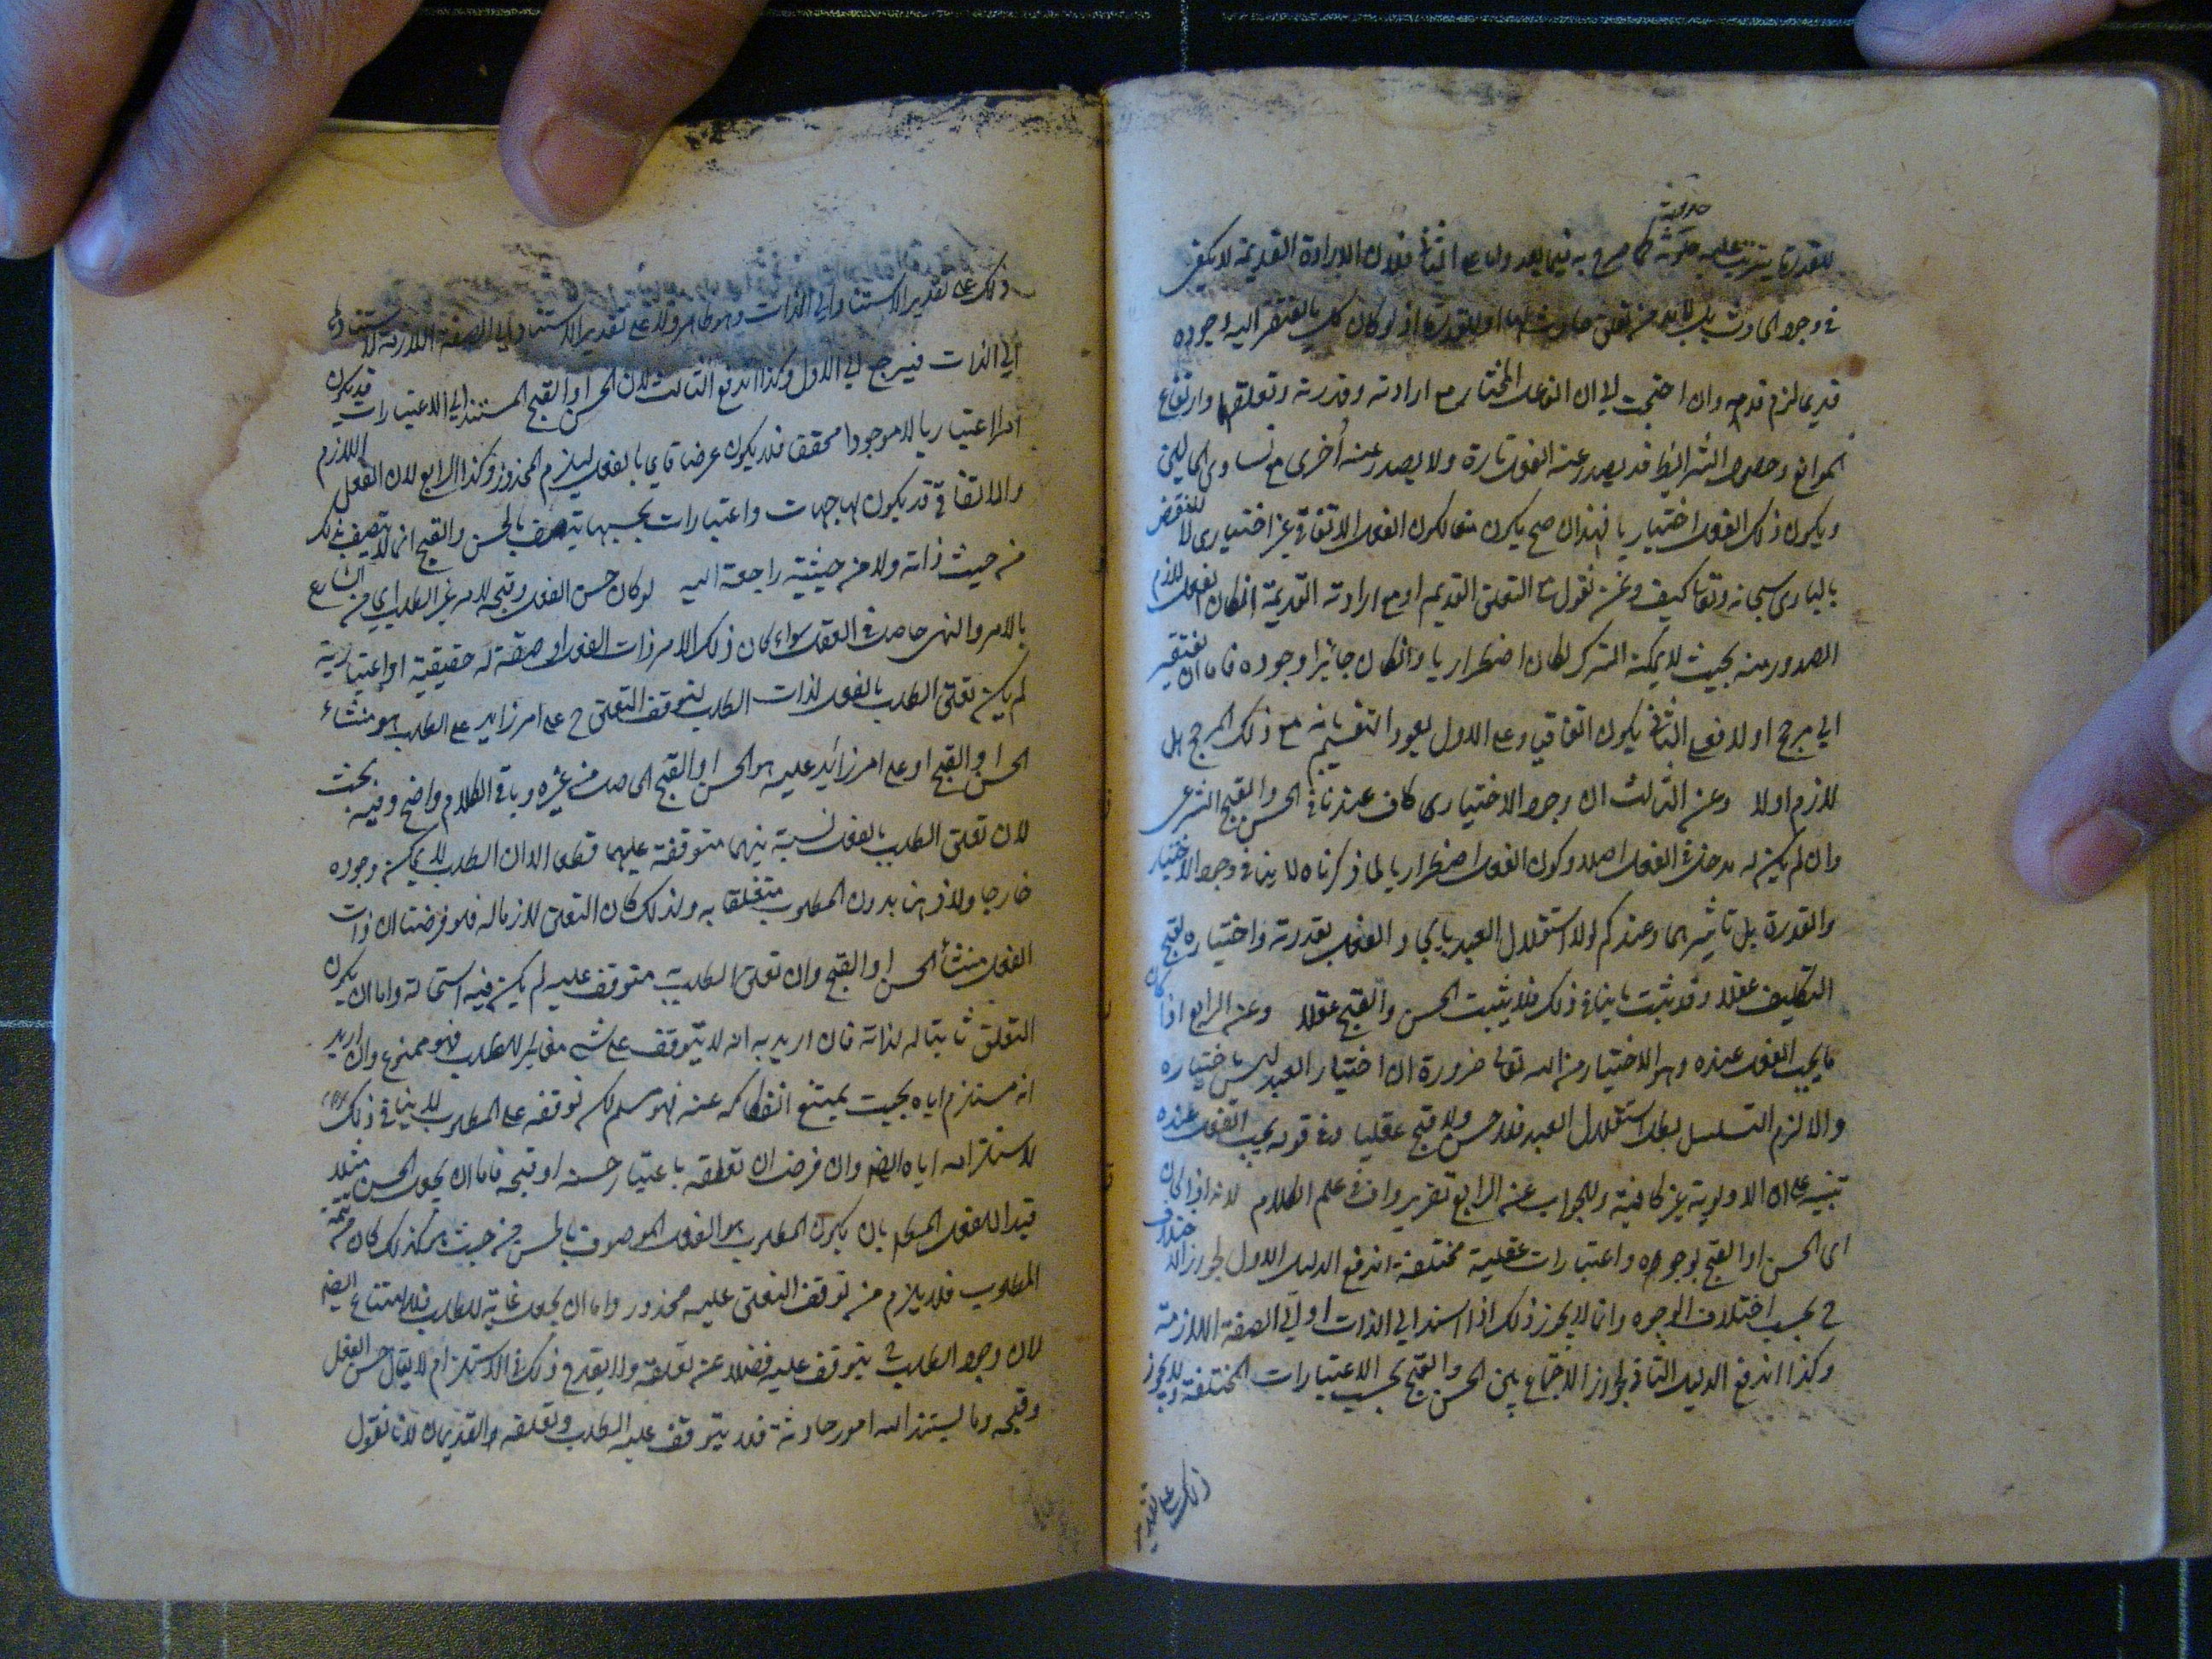 حادثة
للقدرة يترتب عليه حدوثه كما صرح به فيما بعد واما على الثاني فلان الارادة القديمة لا يكفي
في وجود الحادث بل لا بد من تعلق حادث لها او للقدرة اذ لو كان كل ما يفتقر اليه وجوده
قديما لزم قدمه وان احتجت الى ان الفاعل المختار مع ارادته وقدرته وتعلقها وارتفاع
الموانع وحصول الشرائط قد يصدر عنه الفعل تارة ولا يصدر عنه أخرى مع تساوى الحالين
ويكون ذلك الفعل اختياريا فهذا ان صح يكون منعا لكون الفعل الاتفاقي غير اختيارى لا للنقض
بالبارى سبحانه وتعالى كيف ونحن نقول مع التعلق القديم او مع ارادته القديمة ان كان الفعل لازم
الصدور منه بحيث لا يمكنه الترك لكان اضطراريا وان كان جائزا وجوده فاما ان يفتقر
الى مرجح او لا فعلى الثاني يكون اتفاقيا وعلى الاول يعود التقسيم بانه مع ذلك المرجح هل
لازم او لا وعن الثالث ان وجود الاختيارى كاف عندنا في الحسن والقبح الشرعى
وان لم يكن له مدخل في الفعل اصلا وكون الفعل اضطراريا لما ذكرناه لا ينافي وجود الاختيار
والقدرة بل تأثيرهما وعندكم لولا استقلال العبد بايجاد الفعل بقدرته واختياره لقبح
التكليف عقلا وقد ثبت ما ينافي ذلك فلا يثبت الحسن والقبح عقلا وعن الرابع اذا كان
ما يجب الفعل عنده وهو الاختيار من الله تعالى ضرورة ان اختيار العبد ليس باختياره
والا لزم التسلسل بطل استقلال العبد فلا حسن ولا قبح عقليا وفي قوله يجب الفعل عنده
تنبيه على ان الاولوية غير كافية وللجواب عن الرابع تقرير واف في علم الكلام لانه اذا كان
اى الحسن او القبح لوجوه واعتبارات عقلية مختلفة اندفع الدليل الاول لجواز الاختلاف
ح بحسب اختلاف الوجوه وانما لا يجوز ذلك اذا استند الى الذات او الى الصفة اللازمة
وكذا اندفع الدليل الثاني لجواز الاجتماع بين الحسن والقبح بحسب الاعتبارات المختلفة ولا يجوز
ذلك على تقدير
ذلك على تقدير الاستناد الى الذات وهو ظاهر ولا على تقدير الاستناد الى الصفة اللازمة لاستنادها
الى الذات فيرجع الى الاول وكذا اندفع الثالث لان الحسن او القبح المستند الى الاعتبارات قد يكون
امرا اعتباريا لا موجودا محققا فلا يكون عرضا قايما بالفعل ليلزم المحذور وكذا الرابع لان الفعل اللازم
والاتفاقي قد يكون لها جهات واعتبارات بحسبها يتصف بالحسن والقبح انما لا يتصف بذلك
من حيث ذاته ولا من حيثية راجعة اليه لو كان حسن الفعل وقبحه لامر غير الطلب اى من الشارع
بالامر والنهى حاصل في العقل سواء كان ذلك الامر ذات الفعل او صفة له حقيقية او اعتبارية
لم يكن تعلق الطلب بالفعل لذات الطلب لتوقف التعلق ح على امر زايد على الطلب هو منشاء
الحسن او القبح او على امر زائد عليه هو الحسن او القبح الحاصل من غيره وباقي الكلام واضح وفيه بحث
لان تعلق الطلب بالفعل نسبة بينهما متوقفة عليهما قطعا الا ان الطلب لا يمكن وجوده
خارجا ولا ذهنا بدون المطلوب متعلقا به ولذلك كان التعلق لازما له فلو فرضنا ان ذات
الفعل منشأ الحسن او القبح وان تعلق الطلب به متوقف عليه لم يكن فيه استحالة واما ان يكون
التعلق ثابتا له لذاته فان اريد به انه لا يتوقف على شئ مغاير للطلب فهو ممنوع وان اريد
انه مستلزم اياه بحيث يمتنع انفكاكه عنه فهو مسلم لكن توقفه على المطلوب لا ينافي ذلك
لاستلزامه اياه ايضا وان فرضنا ان تعلقه باعتبار حسنه او قبحه فاما ان يجعل الحسن مثلا
قيدا للفعل المطلوب بان يكون المطلوب هو الفعل الموصوف بالحسن من حيث هو كذلك كان من تتمة
المطلوب فلا يلزم من توقف التعلق عليه محذور واما ان يجعل غاية للطلب فلا امتناع ايضا
لان وجود الطلب ح يتوقف عليه فضلا عن تعلقه ولا يقدح ذلك في الاستلزام لا يقال حسن الفعل
وقبحه وما يستند اليه امور حادثة فلا يتوقف عليه الطلب وتعلقه القديمان لانا نقول